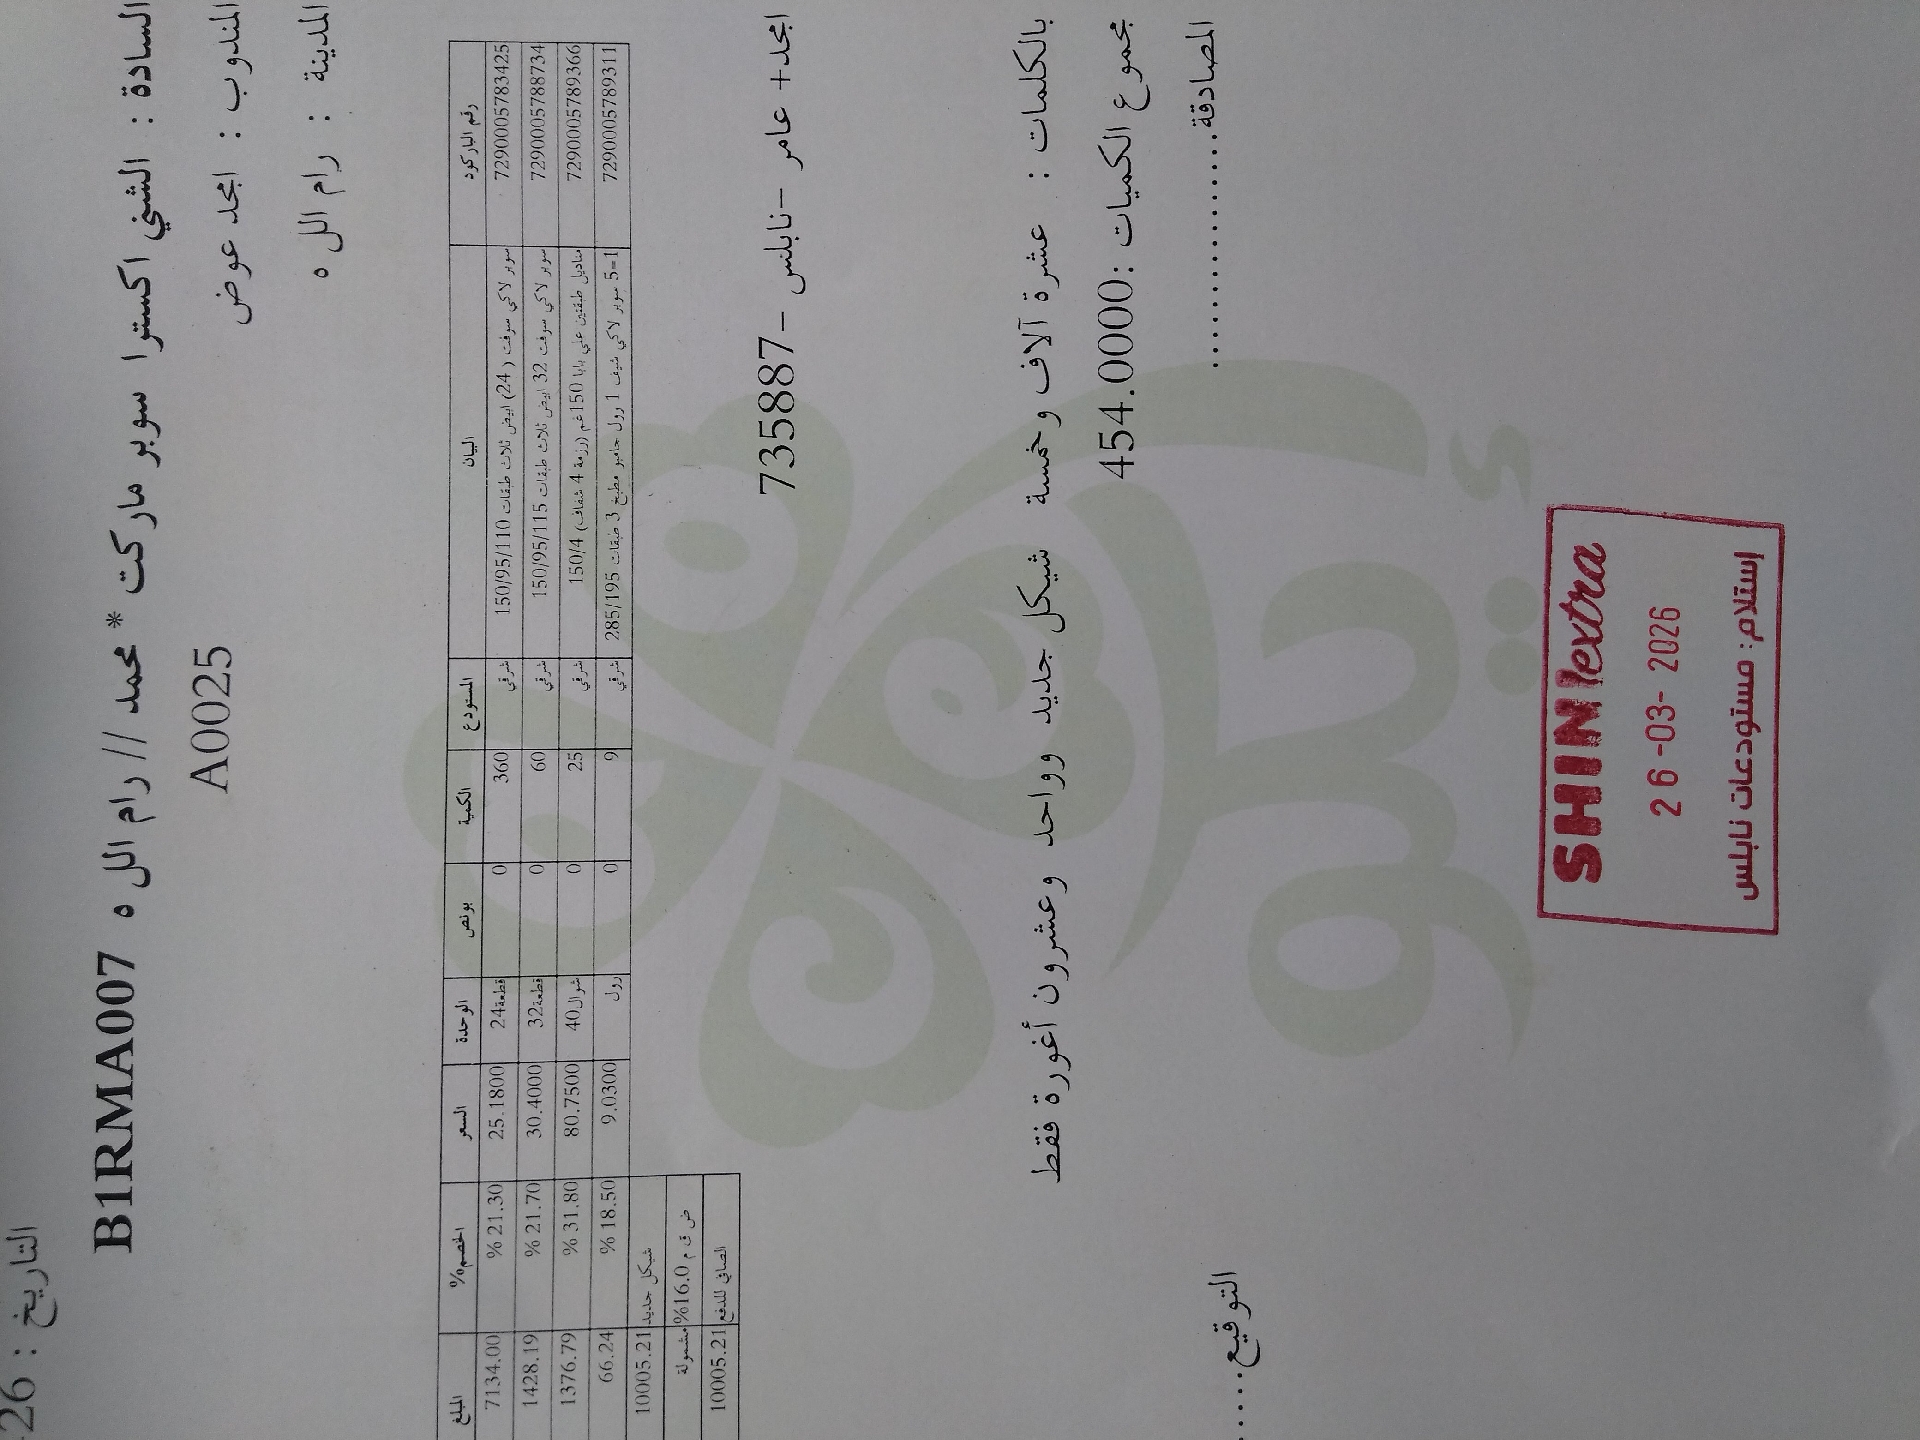 التاريخ : 26-
السادة : الشني اكسترا سوبر ماركت * محمد // رام الل ه B1RMA007
المندوب : امجد عوض A0025
المدينة : رام الل ه
رقم الباركود البيان المستودع الكمية بونص الوحدة السعر الخصم% المبلغ
7290005783425 سوبر لاكي سوفت ( 24) ابيض ثلاث طبقات 150/95/110 شرقي 360 0 قطعة24 25.1800 % 21.30 7134.00
7290005788734 سوبر لاكي سوفت 32 ابيض ثلاث طبقات 150/95/115 شرقي 60 0 قطعة32 30.4000 % 21.70 1428.19
7290005789366 مناديل طبقتين علي بابا 150غم (رزمة 4 شفاف) 150/4 شرقي 25 0 شوال40 80.7500 % 31.80 1376.79
7290005789311 1=5 سوبر لاكي شيف 1 رول جامبو مطبخ 3 طبقات 285/195 شرقي 9 0 رول 9.0300 % 18.50 66.24
شيكل جديد 10005.21
ض ق م 16.0% مشمولة
الصافي للدفع 10005.21
امجد+ عامر –نابلس –735887
بالكلمات : عشرة آلاف وخمسة شيكل جديد وواحد وعشرون أغورة فقط
مجموع الكميات :454.0000
المصادقة....................
التوقيع......
SHINI extra
26-03-2026
إستلام: مستودعات نابلس